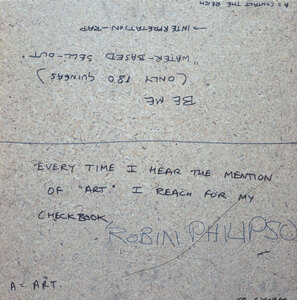 BE ME
(ONLY 180 GUINEAS)
"WATER-BASED SELL-OUT"
→ INTERPRETATION-RAP
EVERY TIME I HEAR THE MENTION
OF "ART" I REACH FOR MY
CHECKBOOK
ROBIN PHILIPSO
A = ART.